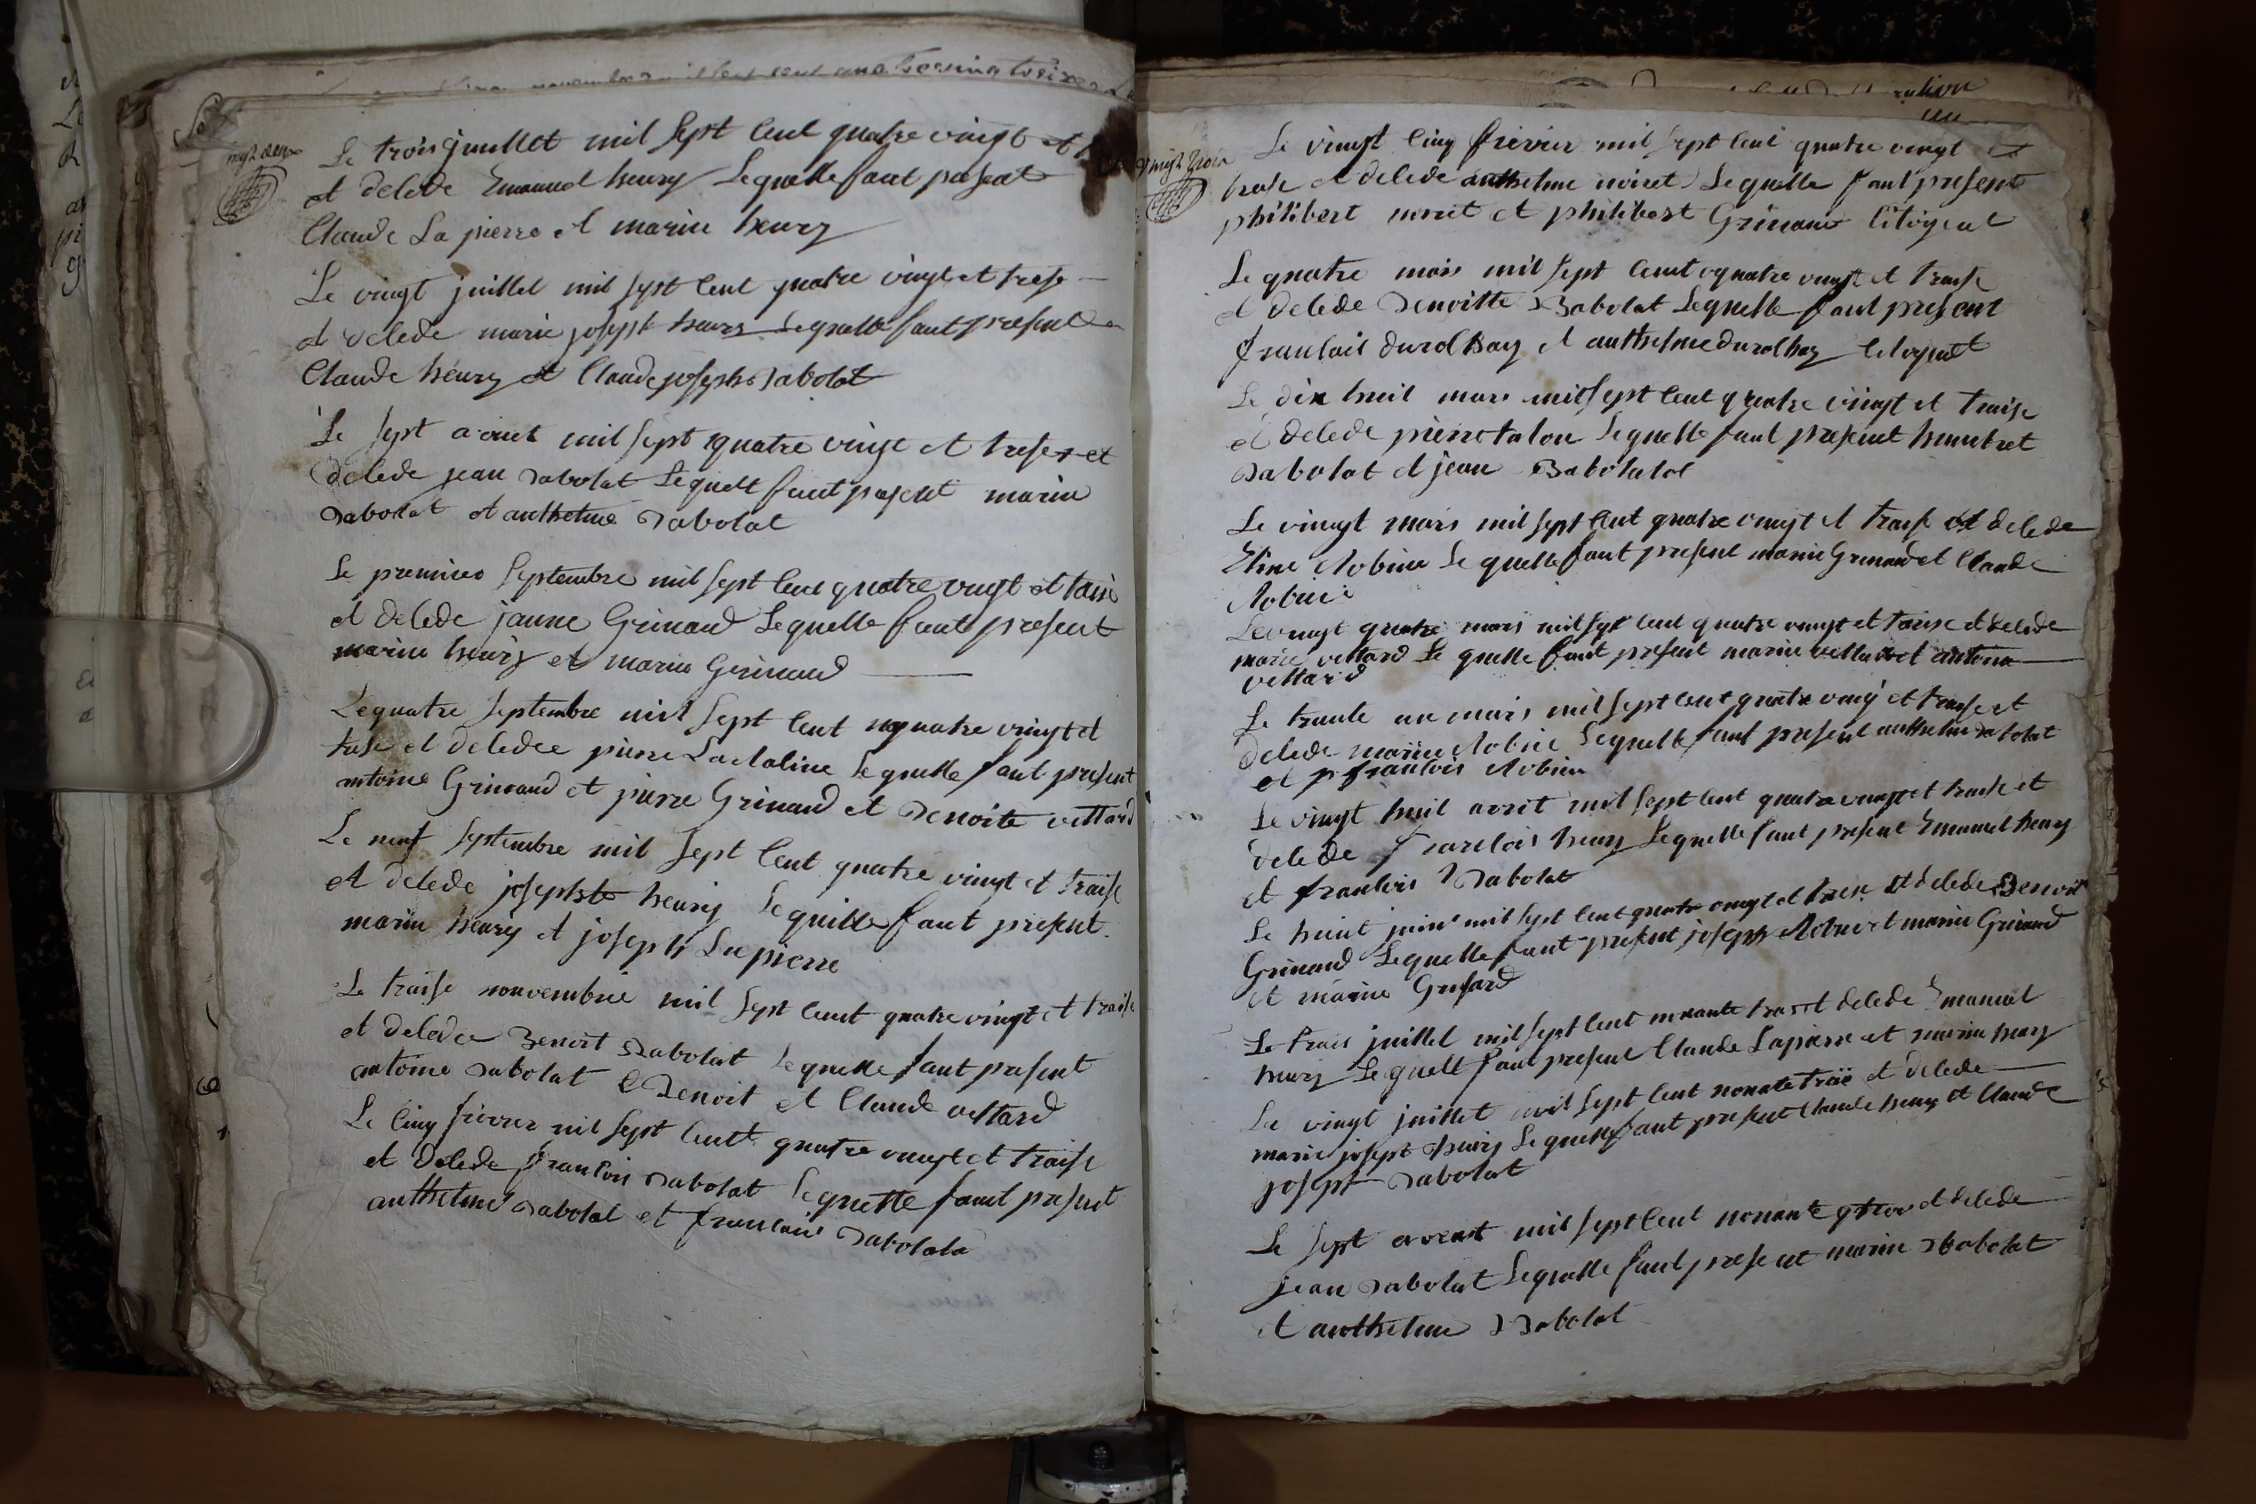 vingt deux
Le trois juillet mil sept cent quatre vingt et
et deléde Emanuel henry Lequelle faut present
Claude La pierre et marie henry
Le vingt juillet mil sept cent quatre vingt et trese
et deléde marie joseph henry Lequelle faut present
Claude henry et Claude joseph Rabolat
Le sept avout mil sept quatre vingt et trese et
deléde jean Rabolat Lequelle faut present marie
Rabolat et anthelme Rabolat
Le premiere septembre mil sept cent quatre vingt et
et deléde janne Grinand Lequelle faut present
marie henry et marie Grinand
Le quatre septembre mil sept cent quatre vingt et
trese et deledee pierre Lequelle faut present
antoine Grinand et pierre Grinand et Benoite vettard
Le neuf septembre mil sept cent quatre vingt et traise
et deléde josephte henry Lequelle faut present
marie henry et joseph La pierre
Le traise nonvembrie mil sept cent quatre vingt et traise
et deledee Benoit Rabolat Lequelle faut present
antoine Rabolat Benoit et Claude vettard
Le cinq frevrier mil sept cent quatre vingt et traise
et deléde francois Rabolat Lequelle faut present
anthelme Rabolat et francois Rabolat
vingt trois
Le vingt cinq frevrier mil sept cent quatre vingt et
traise et deléde anthelme noiret Lequelle faut present
philibert noiret et philibert Grinand citoyent
Le quatre mars mil sept cent quatre vingt et traise
et deléde Benoitte Rabolat Lequelle faut present
francois et anthelme citoyent
Le dix huit mars mil sept cent quatre vingt et traise
et deléde pierre talon Lequelle faut present humbret
Rabolat et jean Rabolat
Le vingt mars mil sept cent quatre vingt et traise et deléde
Robin Lequelle faut present marie Grinand et Claude
Robin
Le vingt quatre mars mil sept cent quatre vingt et traise et deléde
marie vettard Lequelle faut present marie vettard et antoine
vettard
Le trante un mars mil sept cent quatre vingt et traise et
deléde marie Robin Lequelle faut present anthelme Rabolat
et francois Robin
Le vingt huit avril mil sept cent quatre vingt et traise et
deléde francois henry Lequelle faut present Emanuel henry
et francois Rabolat
Le huint juin mil sept cent quatre vingt et trese et deléde Benoit
Grinand Lequelle faut present joseph Robin et marie Grinand
et marie
Le trois juillet mil sept cent nonante trois et deléde Emanuel
henry Lequelle faut present Claude Lapierre et marie henry
Le vingt juillet mil sept cent nonante trois et deléde
marie joseph henry Lequelle faut present Claude henry et Claude
joseph Rabolat
Le sept avout mil sept cent nonante et deléde
jean Rabolat Lequelle faut present marie Rabolat
et anthelme Rabolat